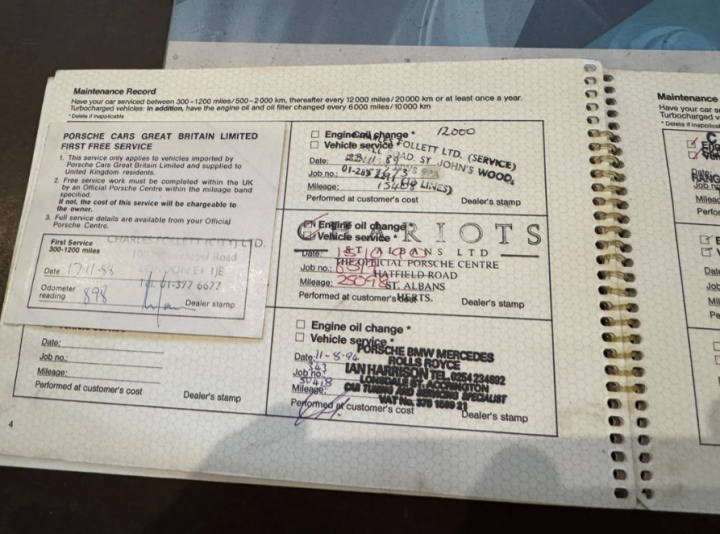 Maintenance Record
Have your car serviced between 300-1200 miles/500-2000 km, thereafter every 12000 miles/20000 km or at least once a year.
Turbocharged vehicles: in addition, have the engine oil and oil filter changed every 6000 miles/10000 km
* Delete if inapplicable
PORSCHE CARS GREAT BRITAIN LIMITED
FIRST FREE SERVICE
1. This service only applies to vehicles imported by
Porsche Cars Great Britain Limited and supplied to
United Kingdom residents.
2. Free service work must be completed within the UK
by an Official Porsche Centre within the mileage band
specified.
If not, the cost of this service will be chargeable to
the owner.
3. Full service details are available from your Official
Porsche Centre.
First Service
300-1200 miles
CHARLES FOLLETT (CITY) LTD.
Road
Date 17-11-88
LONDON E1 1JE
Tel. 01-377 6677
Odometer
reading 898
Dealer stamp
Vehicle service *
Date:
Job no.:
Mileage:
Performed at customer's cost
Dealer's stamp
4
Engine oil change * 12000
Vehicle service *
FOLLETT LTD. (SERVICE)
ROAD, ST JOHN'S WOOD,
Date:
Job no.:
LINES)
Mileage:
Performed at customer's cost
Dealer's stamp
Engine oil change
Vehicle service *
CHARIOTS
ST ALBANS LTD
Date:
THE OFFICIAL PORSCHE CENTRE
Job no.:
HATFIELD ROAD
Mileage: 28098
ST. ALBANS
HERTS.
Performed at customer's cost
Dealer's stamp
Engine oil change *
Vehicle service *
PORSCHE BMW MERCEDES
ROLLS ROYCE
Date: 11-8-94
IAN HARRISON TEL. 0254 234692
Job no.: 343
LONSDALE ST. ACCRINGTON
Mileage:
CAR TUNING AND SERVICING SPECIALIST
VAT No. 378 1089 21
Performed at customer's cost
Dealer's stamp
Maintenance
Have your car se
Turbocharged v
* Delete if inapplica